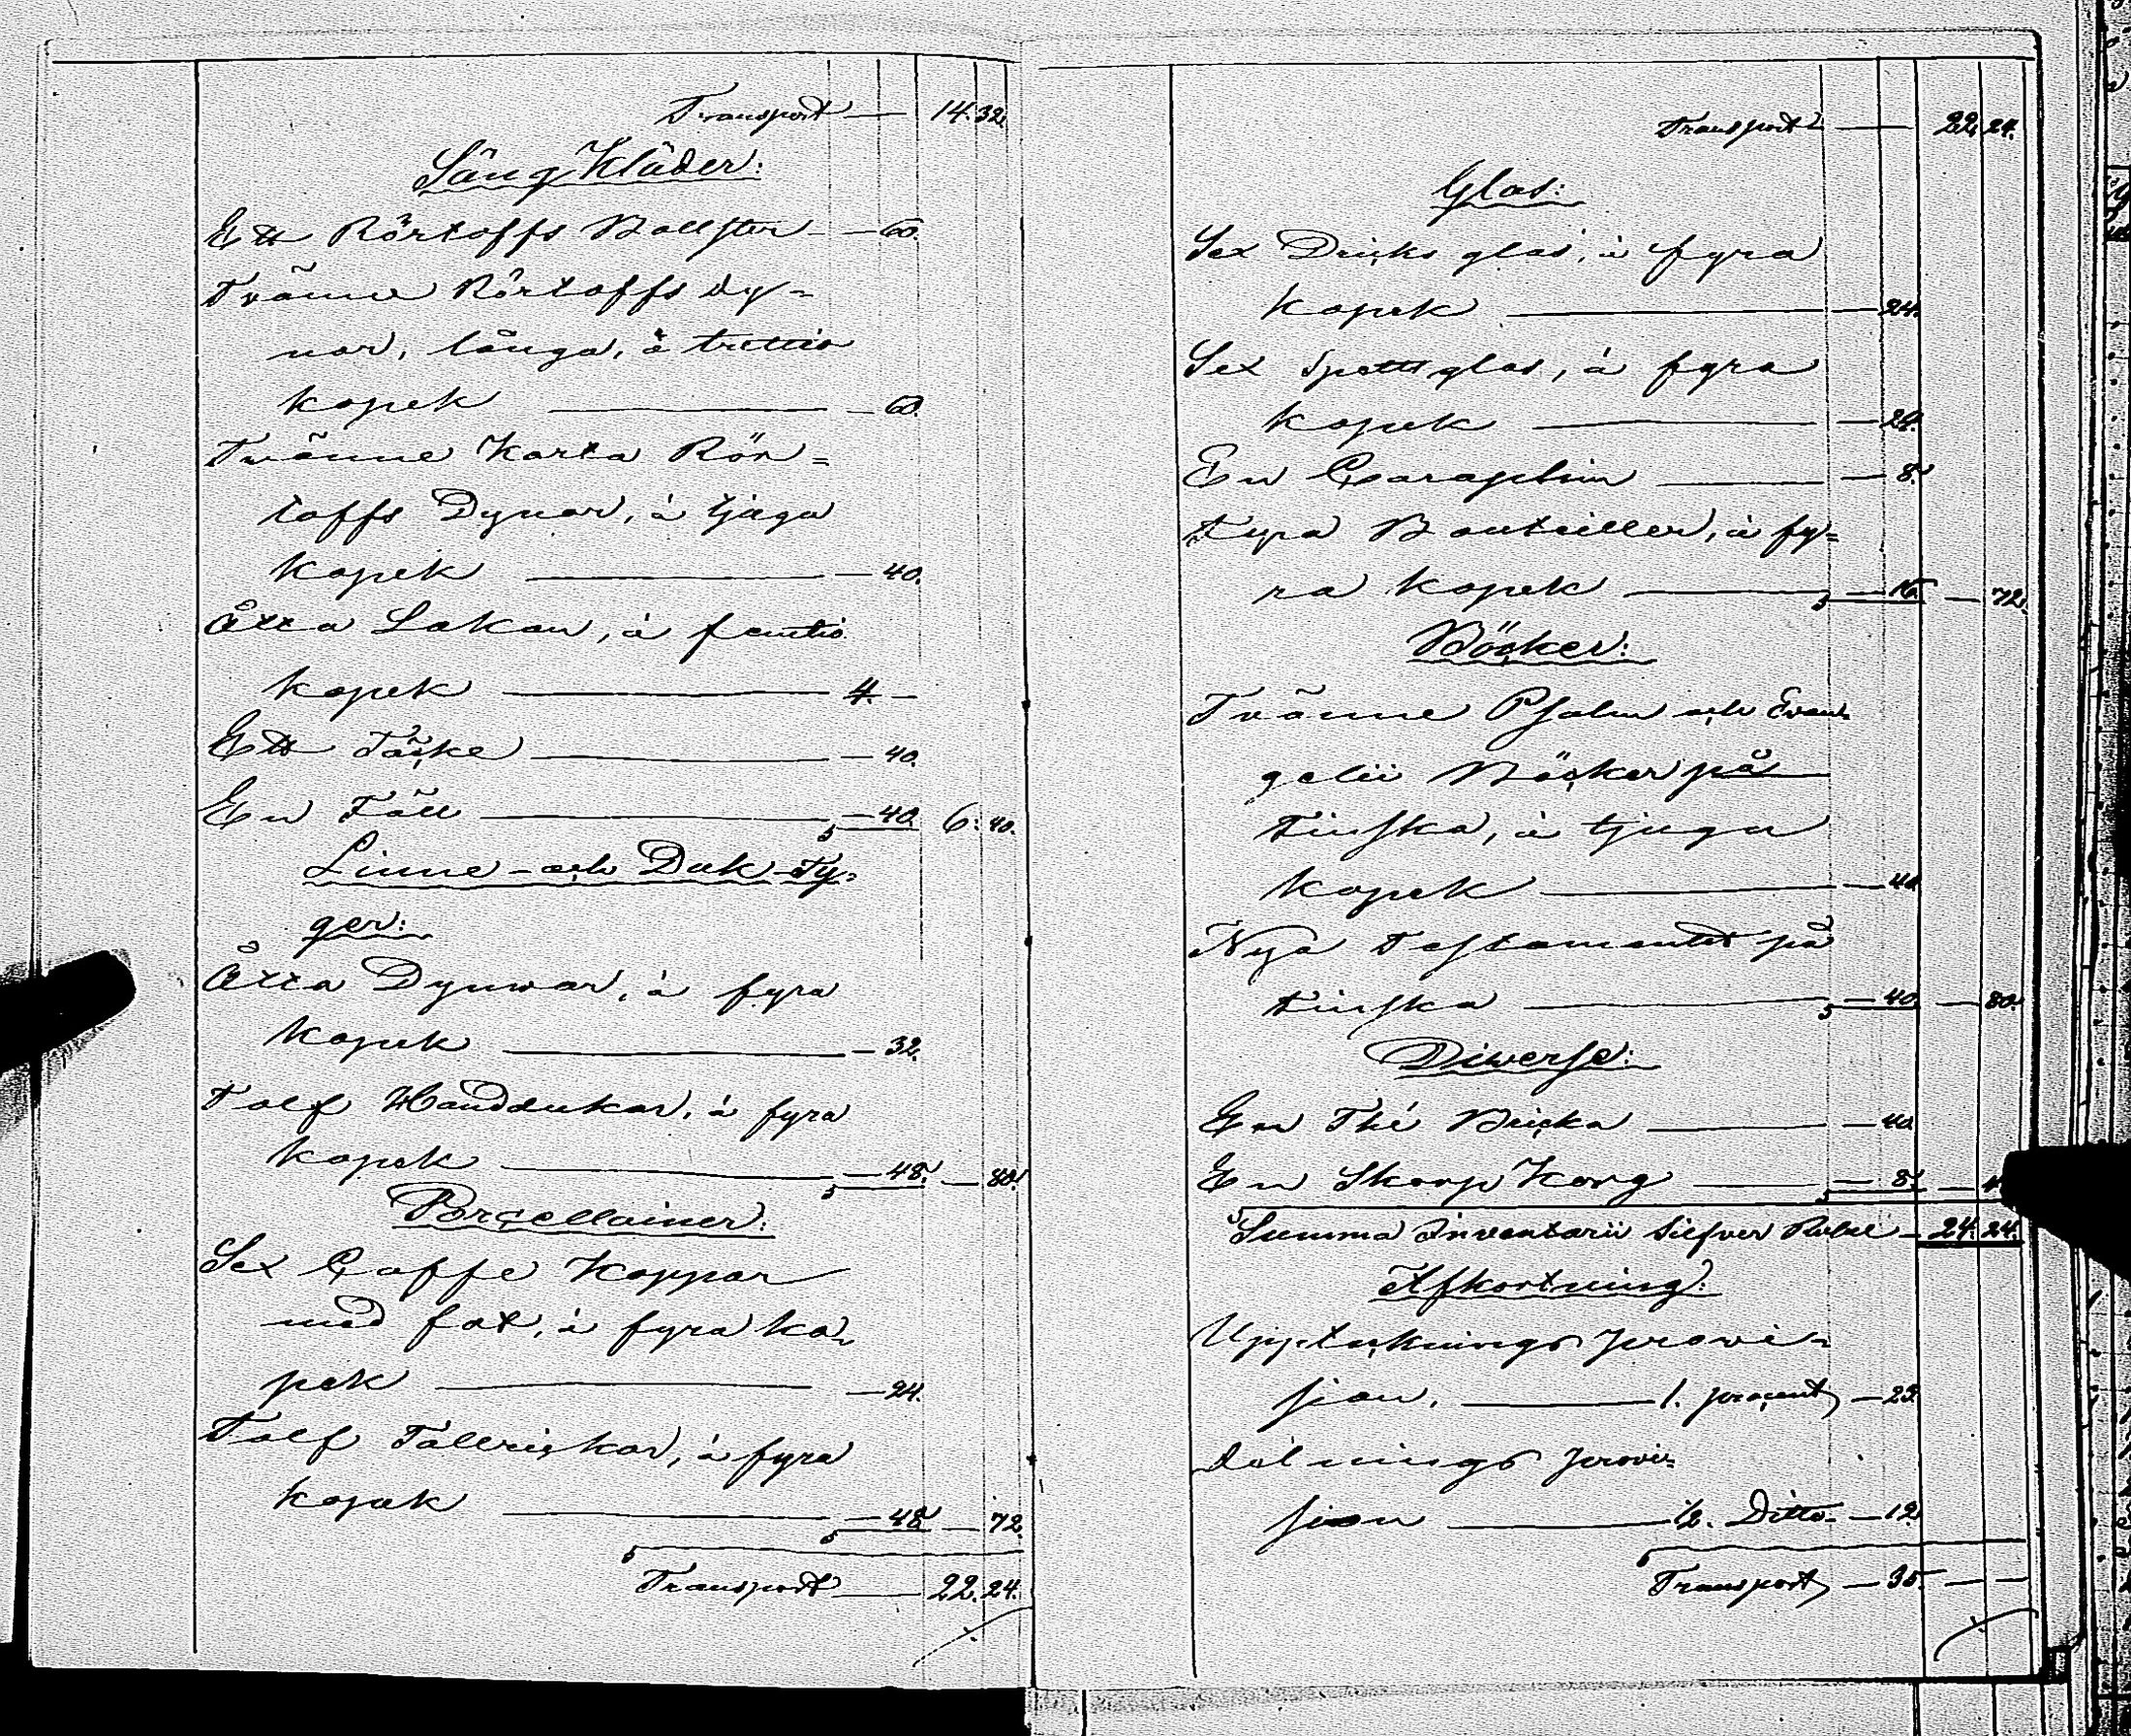 Transport — 14. 32.
Säng Kläder:
Ett Rörtoffs Bollster — — 60.
Tvänne Rörtoffs dy=
nor, långa, à trettio
kopek — — 60.
Tvänne Korta Rör=
toffs Dynor, à tjugu
kopek — — 40.
Åtta Lakan, à femtio
kopek — 4. —
Ett Täcke — — 40.
En Fäll — — 40. 6. 40.
Linne- och Duk-Ty=
ger:
Åtta Dynwar, à fyra
kopek — — 32.
Tolf Handdukar, à fyra
kopek — — 48. — 80.
Porcellainer:
Sex Caffe Koppar
med fat, à fyra ko=
pek — — 24.
Tolf Tallrickar, à fyra
kopek — — 48. — 72.
Transport — 22. 24.
Transport — 22. 24.
Glas:
Sex Dricks glas, à fyra
kopek — — 24.
Sex Spetts glas, à fyra
kopek — — 24.
En Caraphin — — 8.
Fyra Bouteiller, à fy=
ra kopek — — 16. — 72.
Böcker:
Tvänne Psalm och Evan=
gelii Böcker på
Finska, à tjugu
kopek — — 40.
Nya Testamentet på
Finska — — 40. — 80.
Diverse:
En Thé Bricka — — 40.
En Skorp Korg — — 8. —
Summa Inventarii Silfver Rubel — 24. 24.
Afkortning:
Uppteckningsprovi=
sion, — 1. procent — 23.
delningsprovi=
sion — ½. Ditto — 12.
Transport — 35. — —